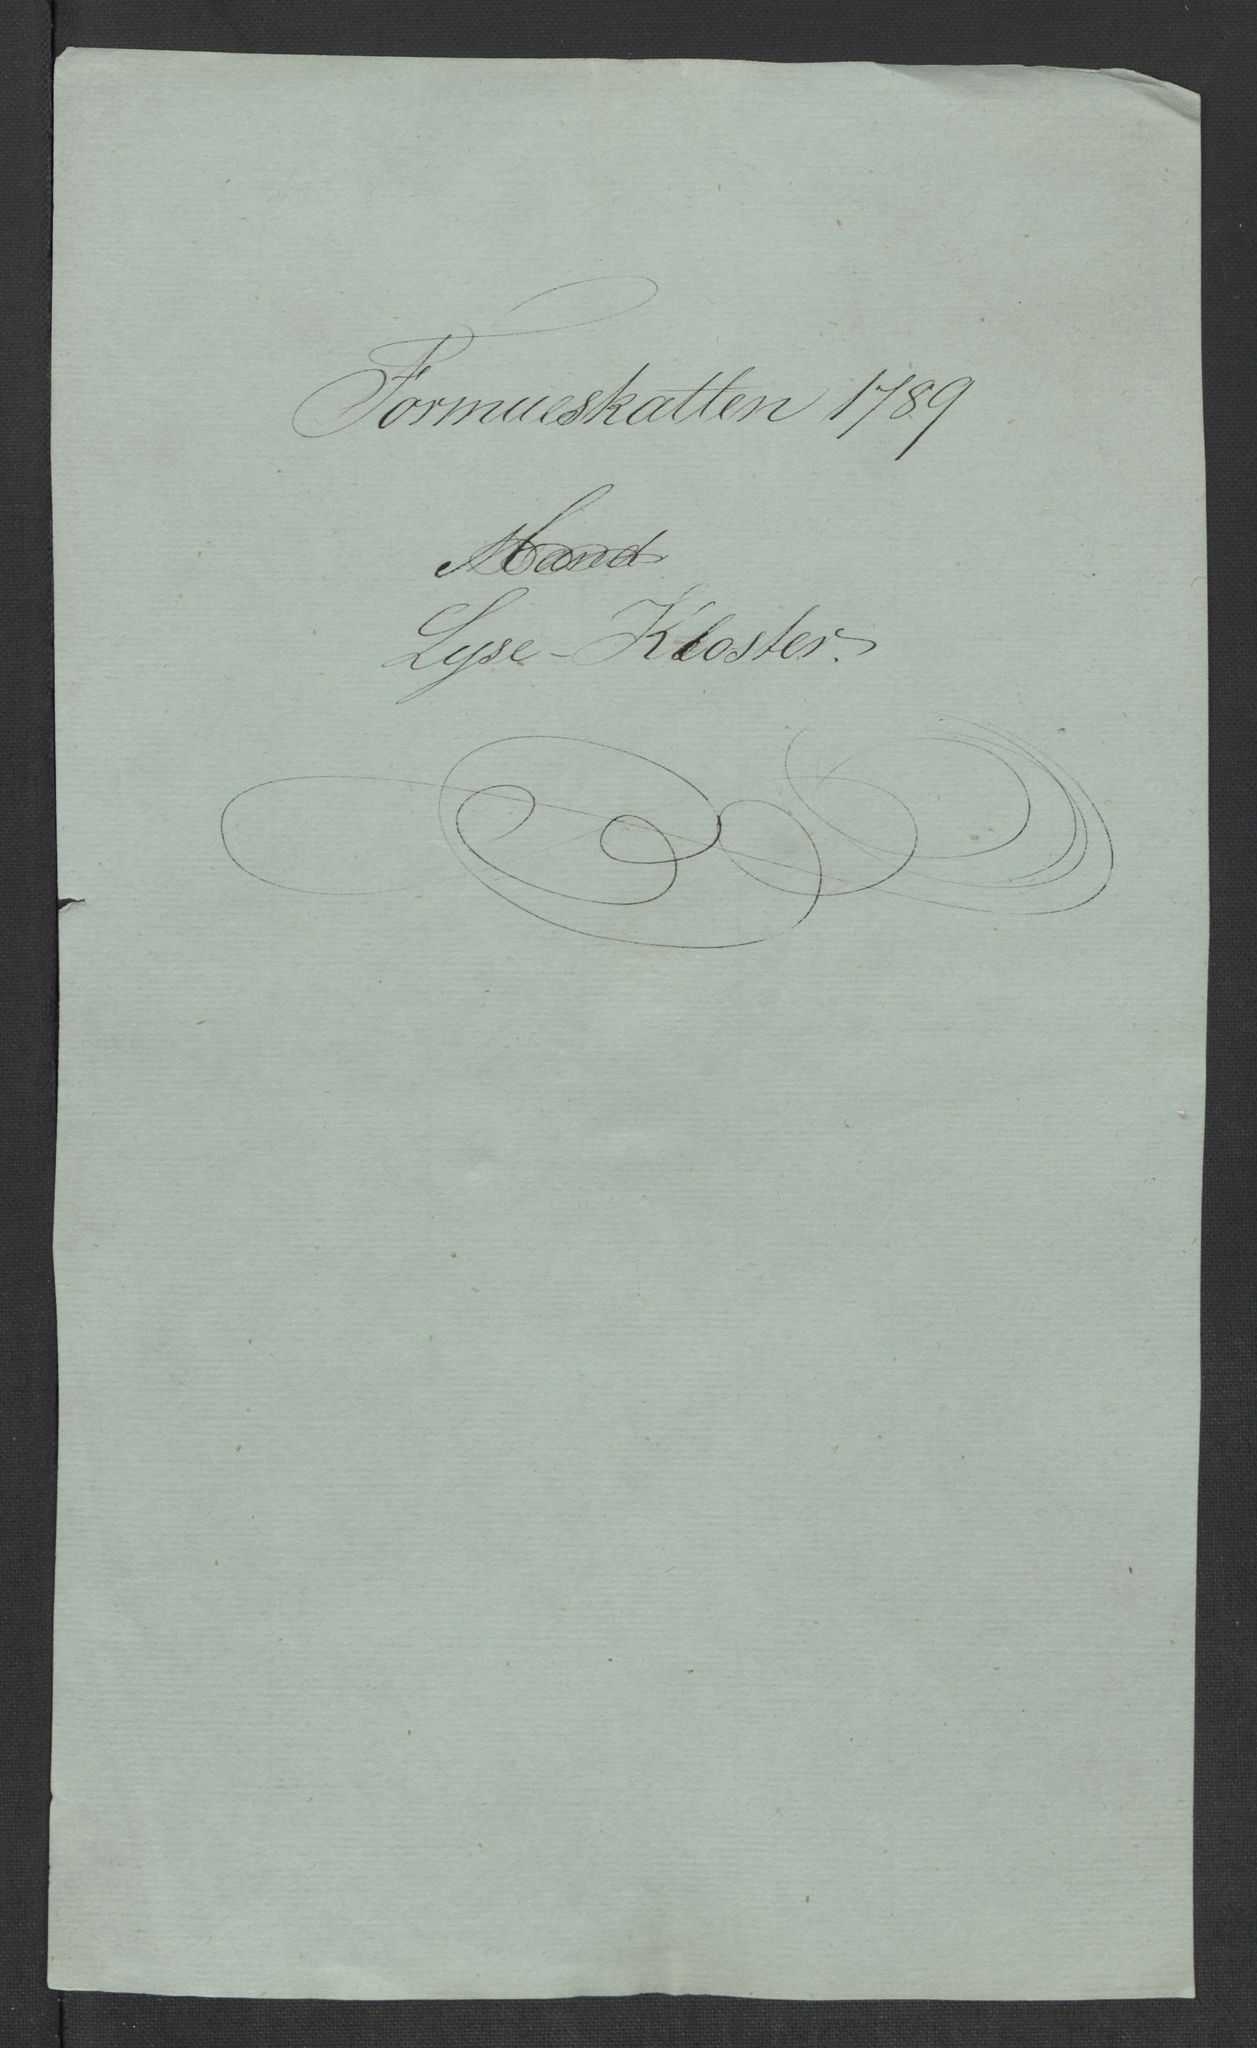 Formueskatten 1789
Lyse-Kloster.